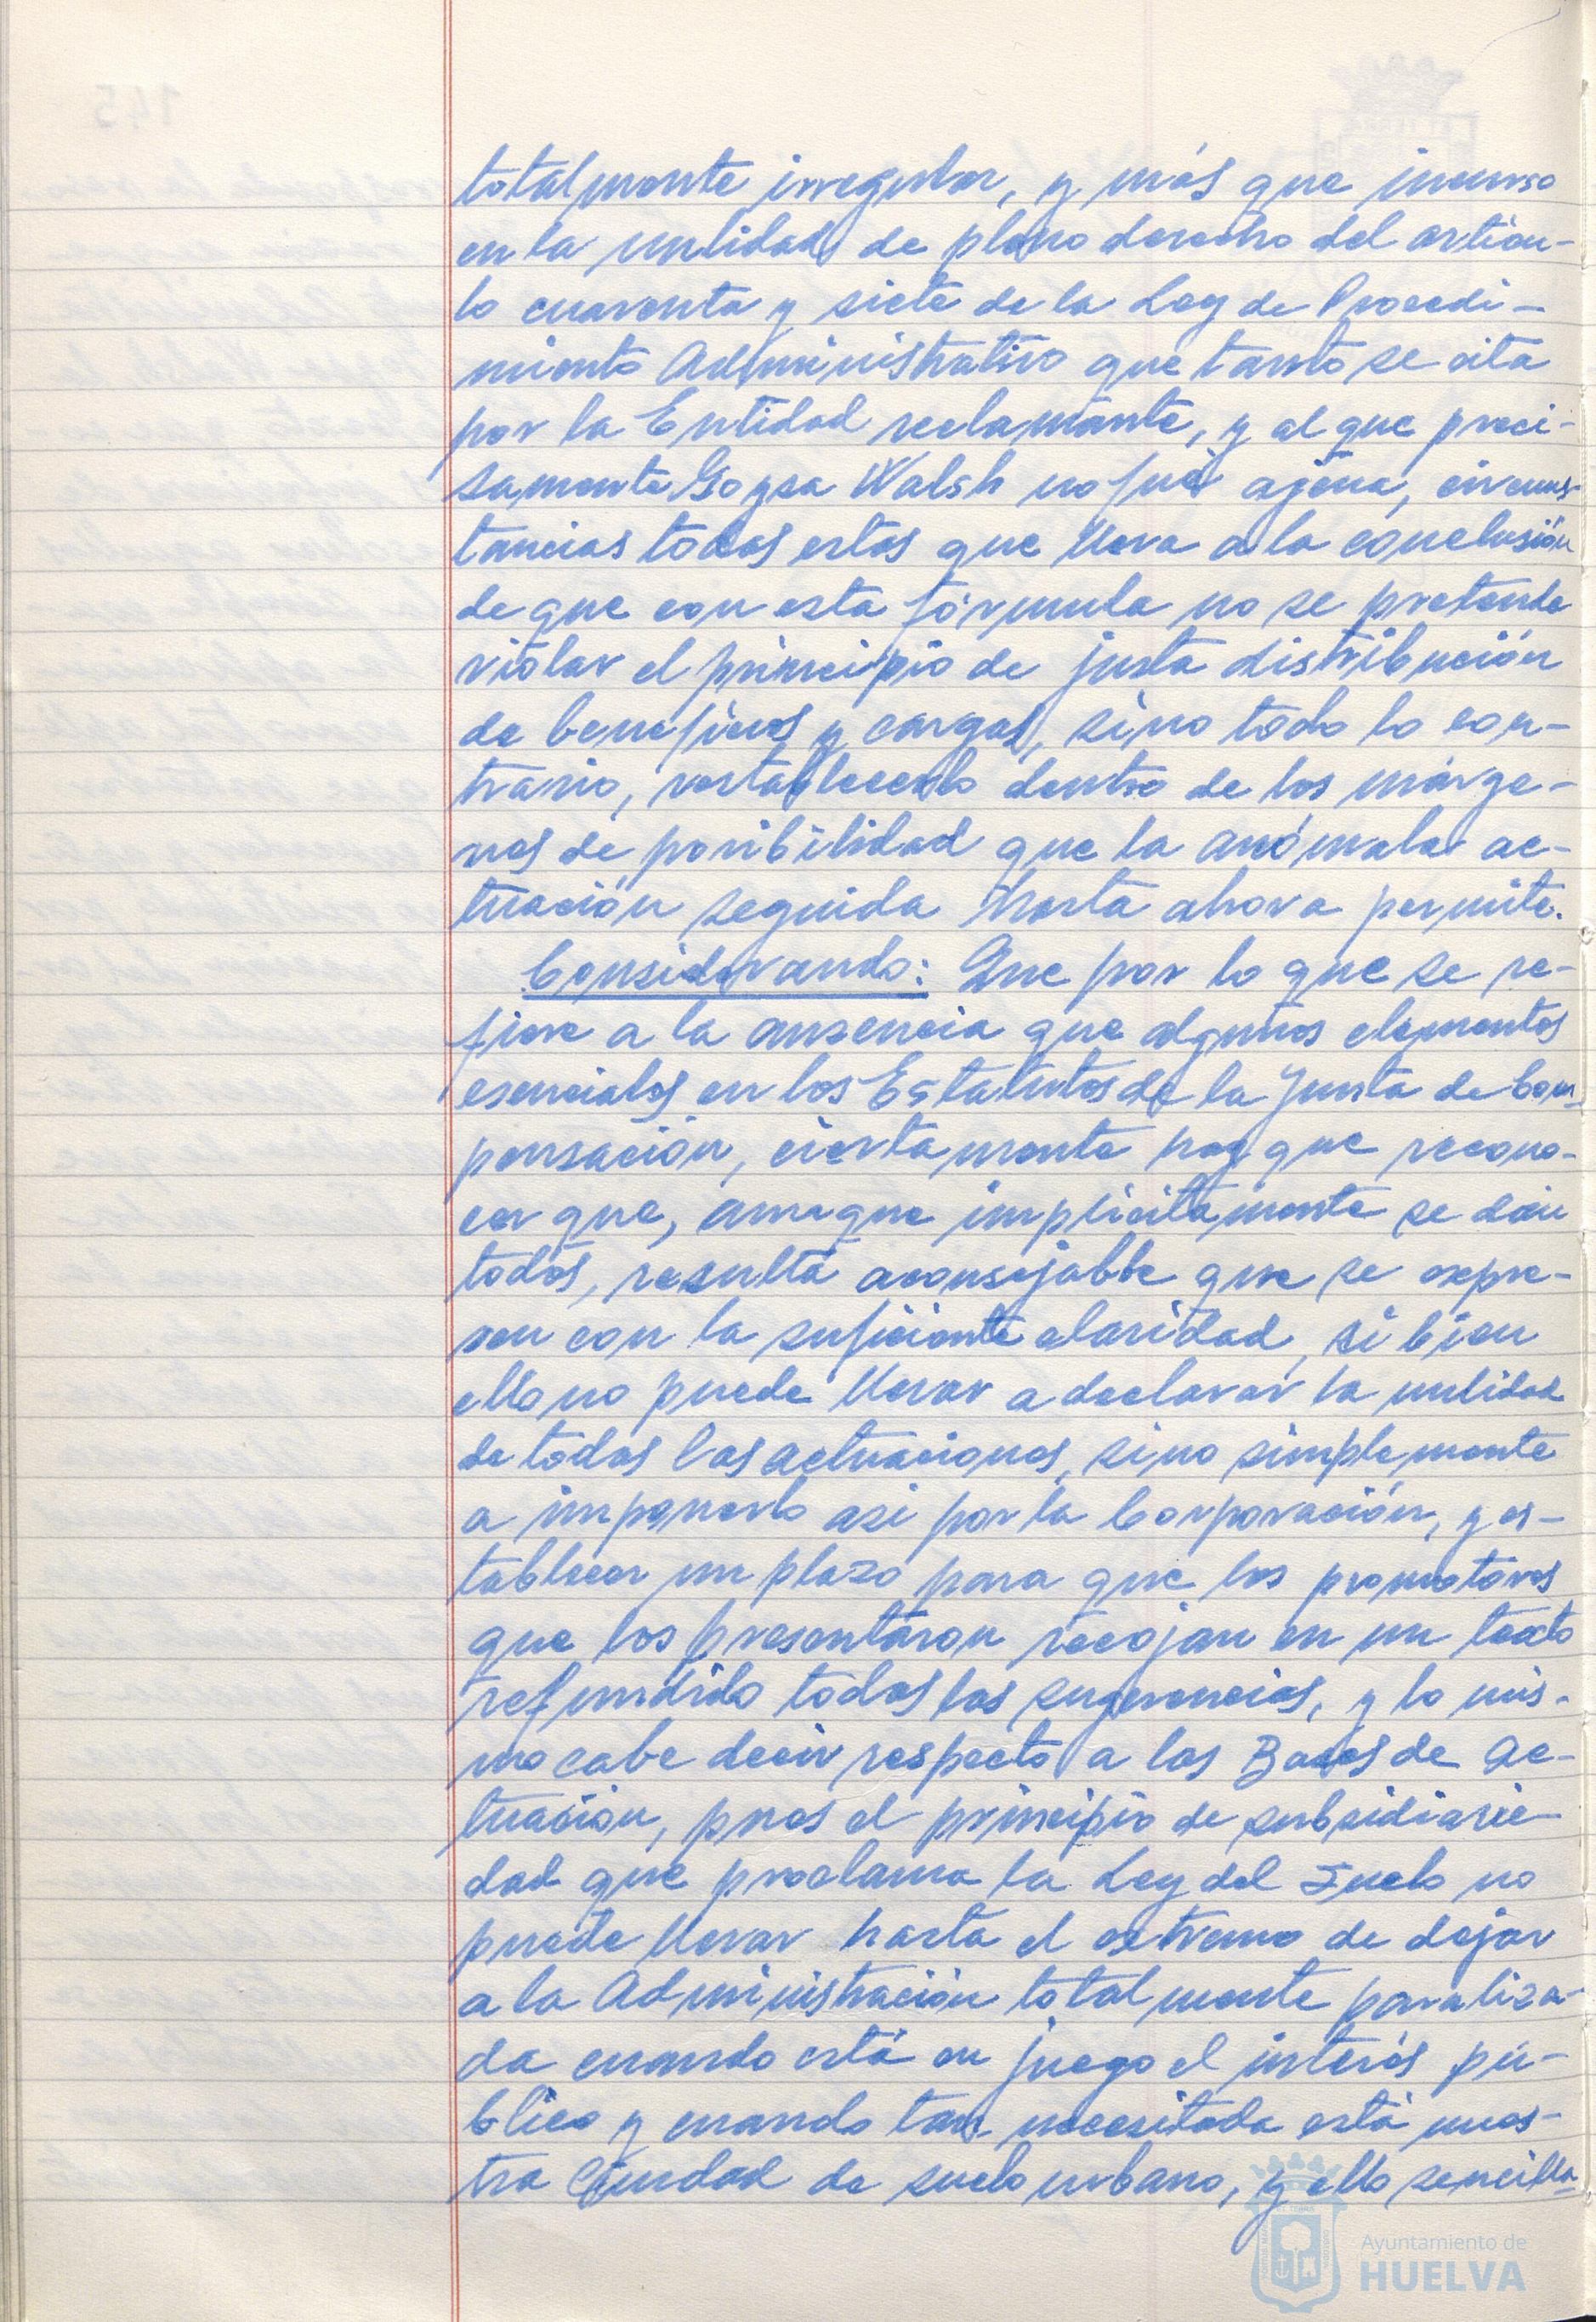 totalmente irregular, y más que incurso
en la nulidad de pleno derecho del artícu-
lo cuarenta y siete de la Ley de Procedi-
miento Administrativo que tanto se cita
por la Entidad reclamante, y al que preci-
samente Goysa Walsh no fué ajena, circuns-
tancias todas estas que lleva a la conclusión
de que con esta fórmula no se pretende
violar el principio de justa distribución
de beneficios y cargas, sino todo lo con-
trario, restablecerlo dentro de los márge-
nes de posibilidad que la anómala ac-
tuación seguida hasta ahora permite.
Considerando: Que por lo que se re-
fiere a la ausencia que algunos elementos
esenciales en los Estatutos de la Junta de Com-
pensación, ciertamente hay que recono-
cer que, aunque implícitamente se dan
todos, resulta aconsejable que se expre-
sen con la suficiente claridad, si bien
ello no puede llevar a declarar la nulidad
de todas las actuaciones, sino simplemente
a imponerlo asi por la Corporación, y es-
tablecer un plazo para que los promotores
que los presentaron recojan en un texto
refundido todas las sugerencias, y lo mis-
mo cabe decir respecto a las Bases de Ac-
tuación, pues el principio de subsidiarie-
dad que proclama la Ley del Suelo no
puede llevar hasta el extremo de dejar
a la Administración totalmente paraliza-
da cuando está en juego el interés pú-
blico y cuando tan necesitada está nues-
tra Ciudad de suelo urbano, y ello sencilla-
Ayuntamiento de
HUELVA